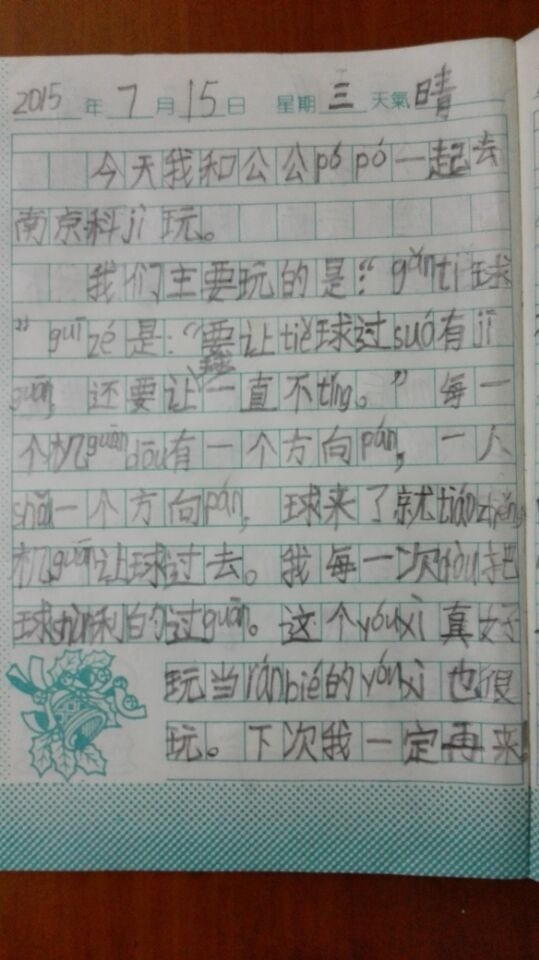 2015 年 7 月 15 日 星期 三 天氣 晴
今天我和公公pó pó一起去
南京科jì玩。
我们主要玩的是：“gǎntiě球
”guīzé是：“要让tiě球过suó有jī
guān，还要让一直不tíng。”每一
个机guāndōu有一个方向pán，一人
shǒu一个方向pán，球来了就tiáozhěng
机guān让球过去。我每一次dōu把
球shùn利的过guān。这个yóuxì真好
玩当ránbié的yóuxì也很
玩。下次我一定再来！